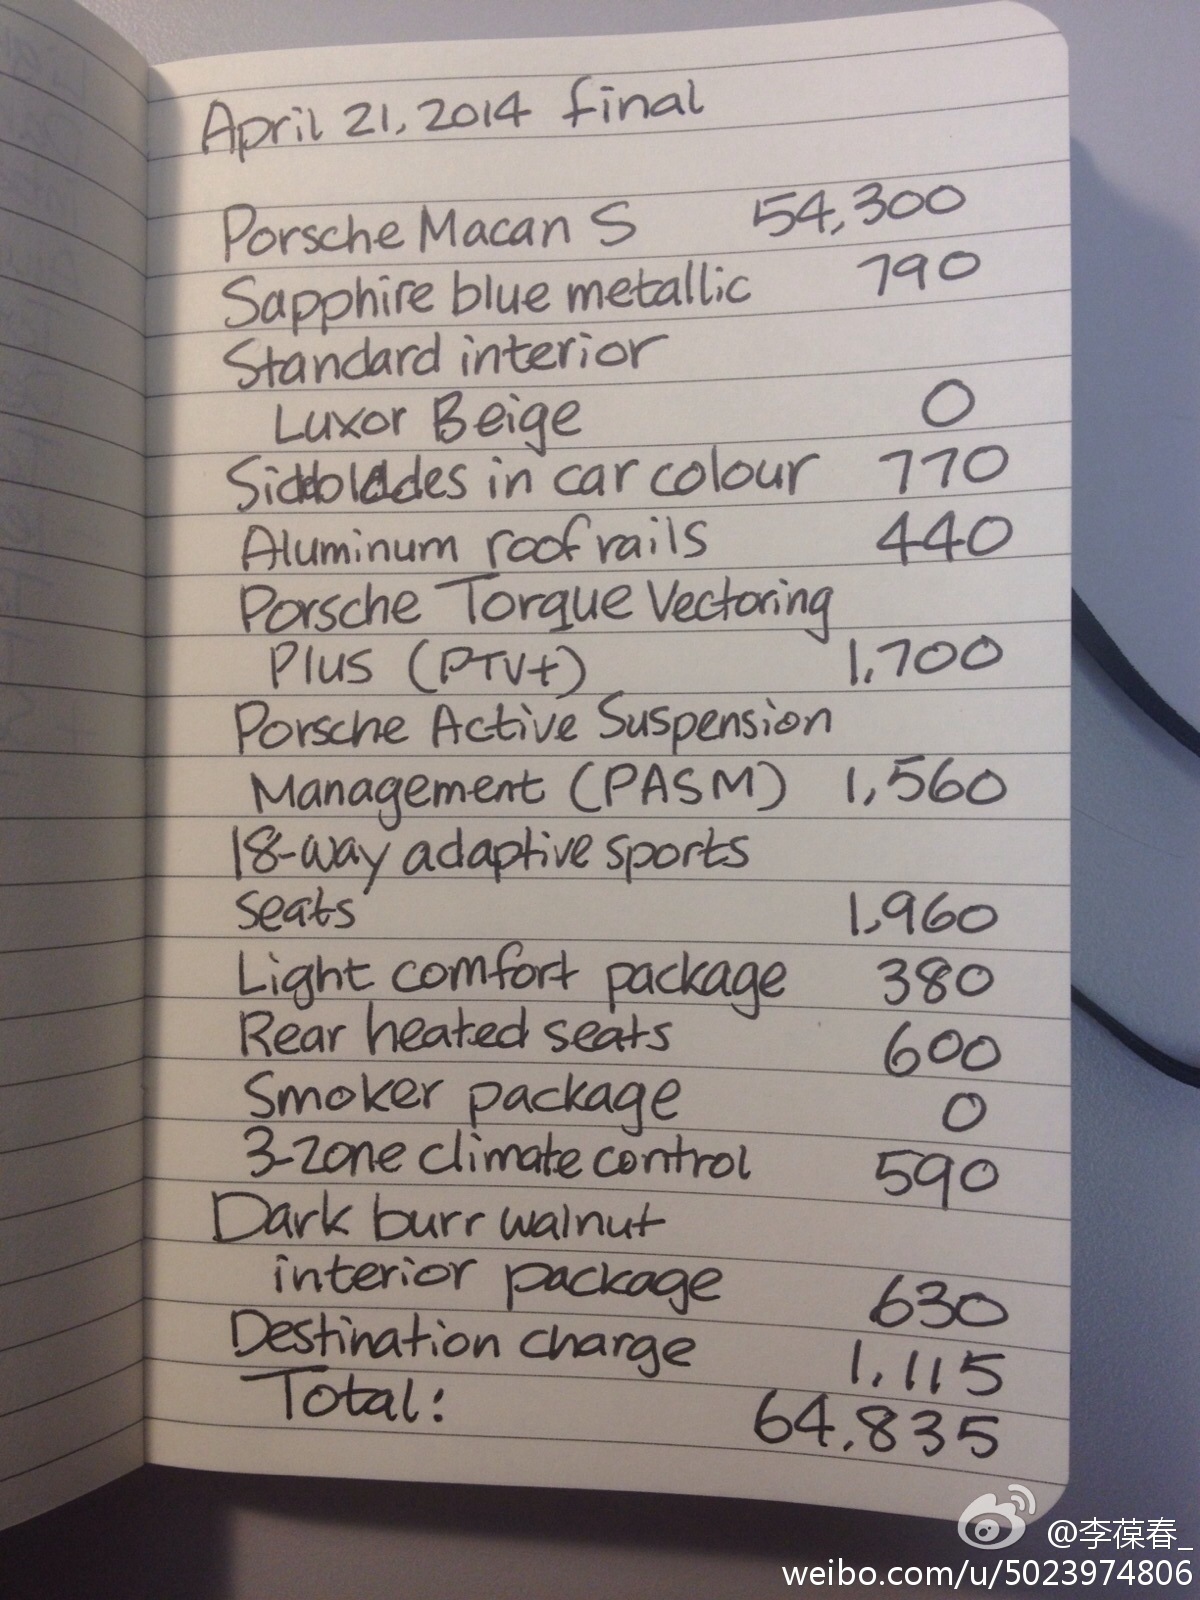 April 21, 2014 final
Porsche Macan S 54,300
Sapphire blue metallic 790
Standard interior
Luxor Beige 0
Sideblades in car colour 770
Aluminum roof rails 440
Porsche Torque Vectoring
Plus (PTV+) 1,700
Porsche Active Suspension
Management (PASM) 1,560
18-way adaptive sports
seats 1,960
Light comfort package 380
Rear heated seats 600
Smoker package 0
3-zone climate control 590
Dark burr walnut
interior package 630
Destination charge 1,115
Total: 64,835
@李葆春_
weibo.com/u/5023974806